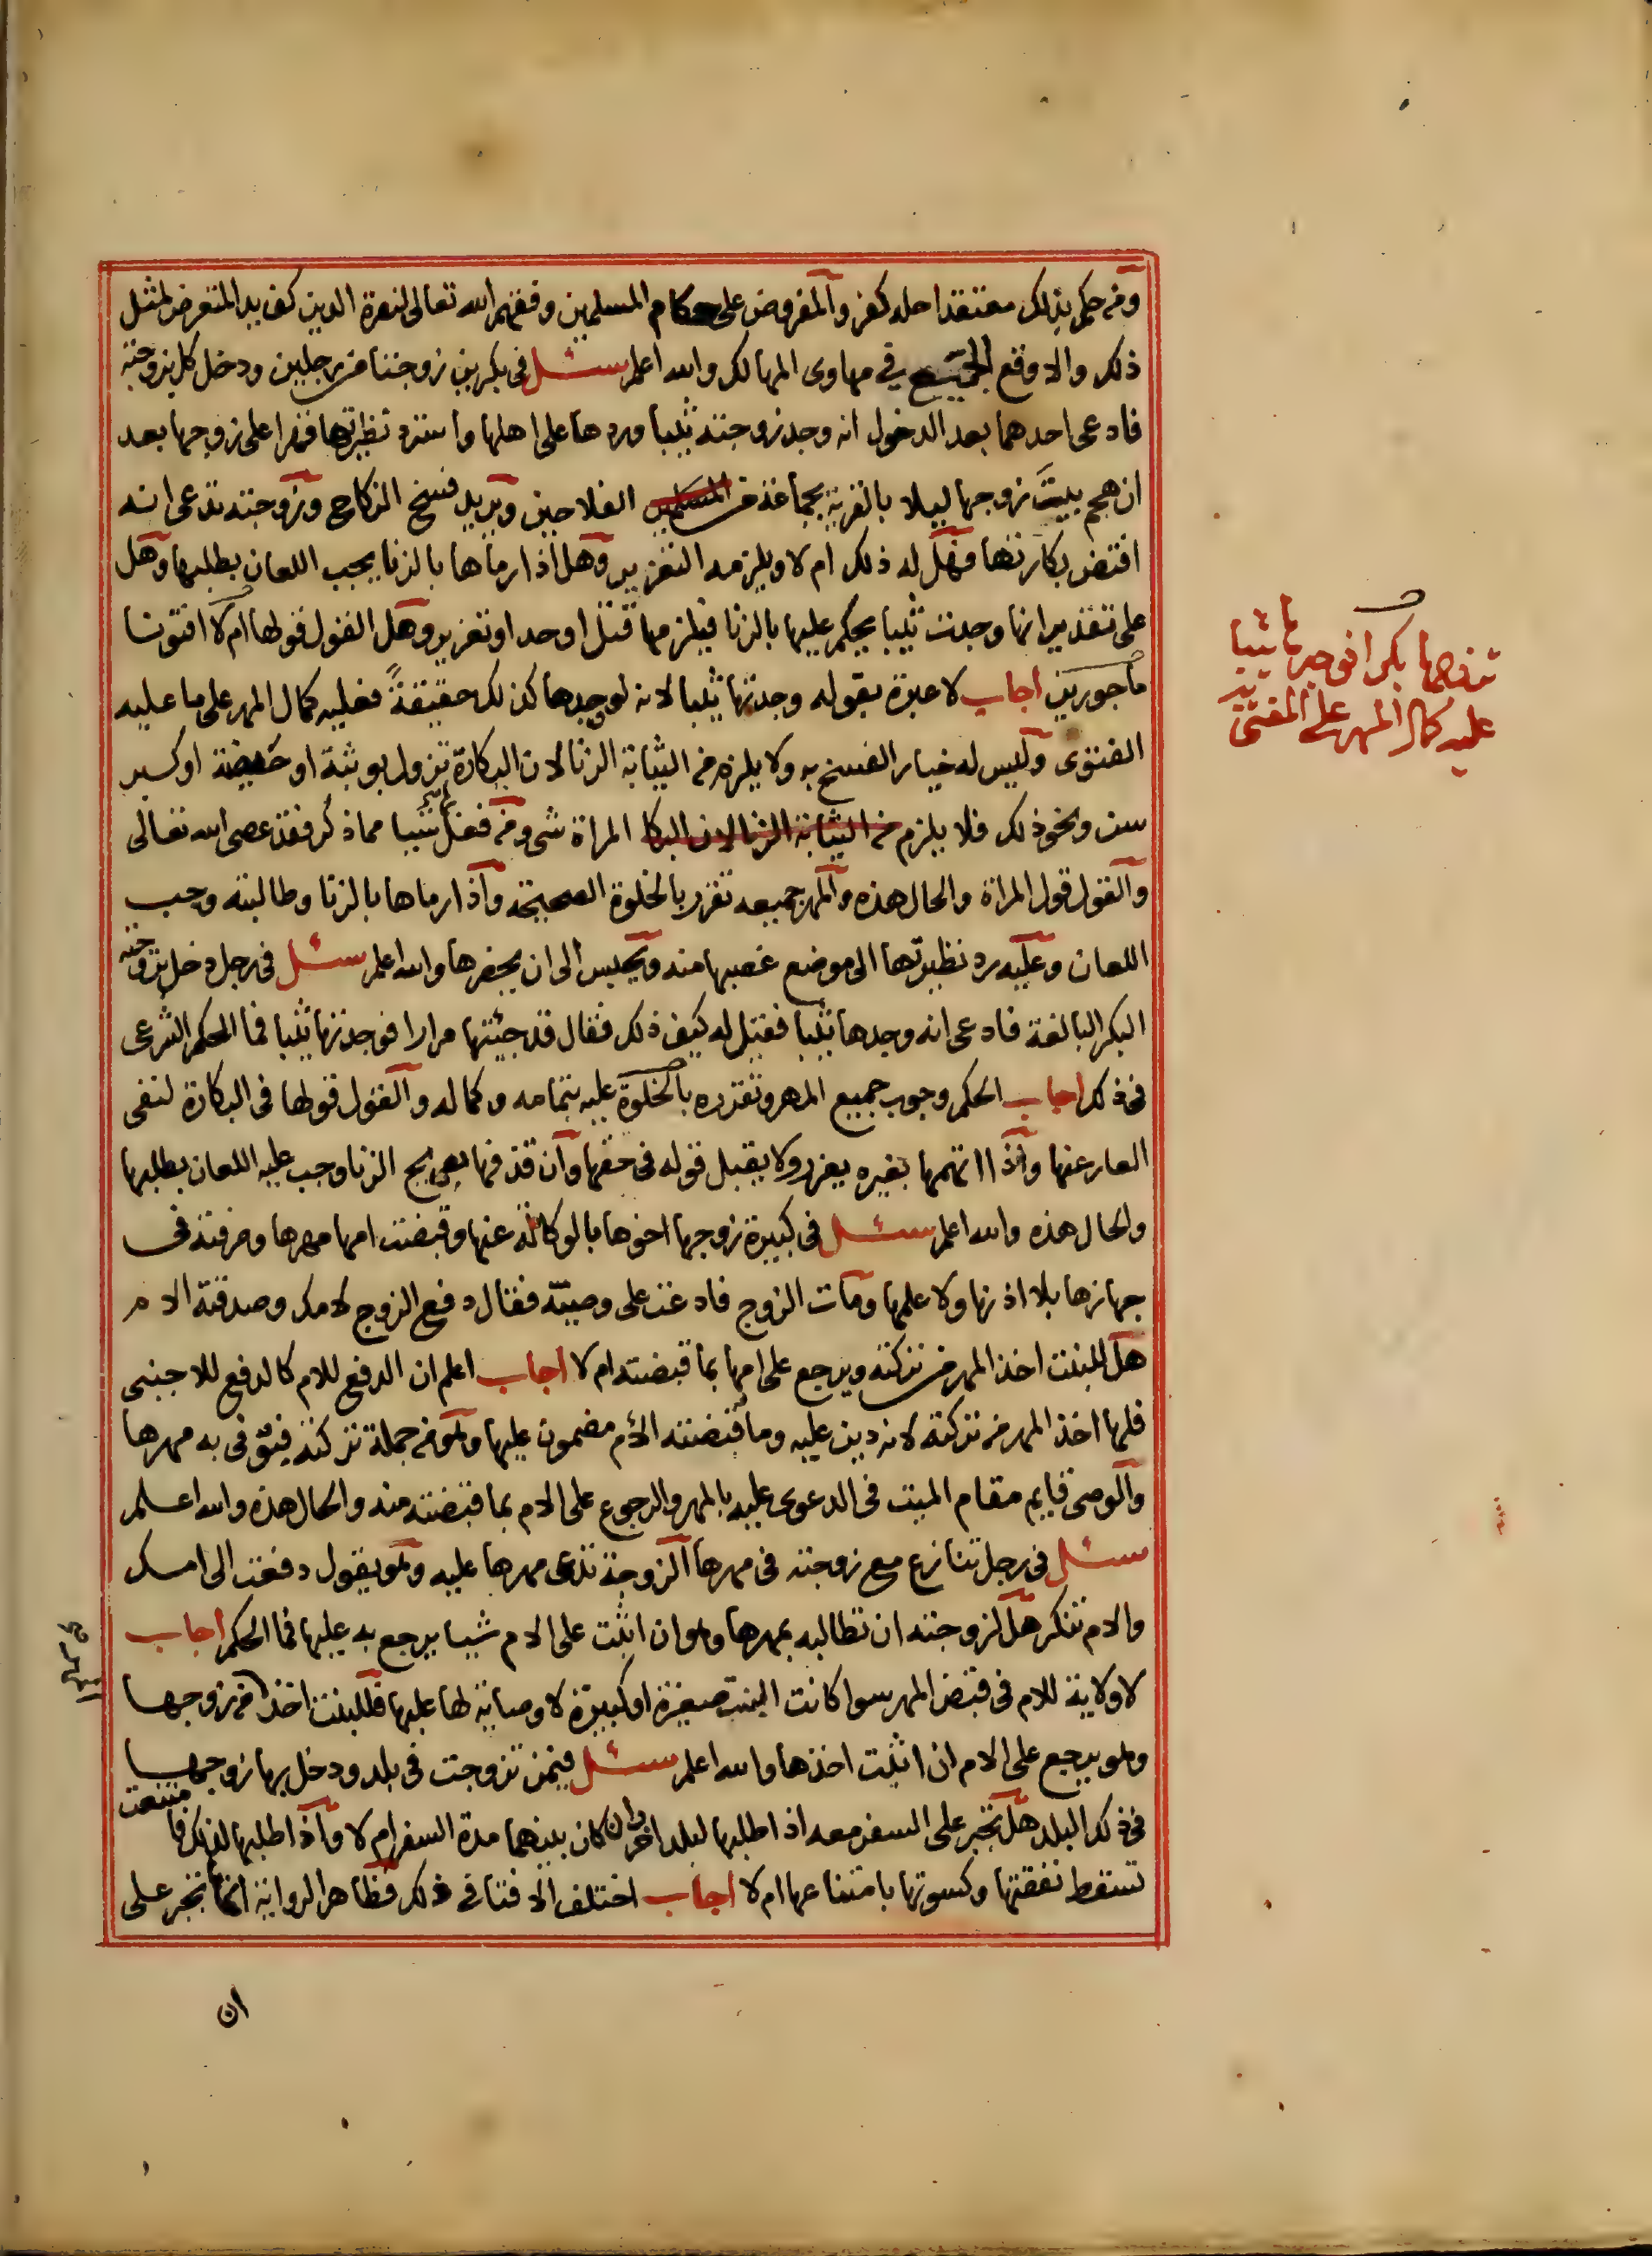 ومن حكم بذلك معتقدا حله كفر والمفروض على حكام المسلمين وفقهم الله تعالى لنصرة الدين كف يد المتعرض لمثل
ذلك والا وقع الجميع في مهاوى المهالك والله اعلم سئل فى بكرين زوجتا من رجلين ودخل كل بزوجته
فادعى احدهما بعد الدخول انه وجد زوجته ثيبا وردها على اهلها واسترد نظيرتها قهرا على زوجها بعد
ان هجم بيت زوجها ليلا بالقرية بجماعة من المسلمين الفلاحين ويريد فسخ النكاح وزوجته تدعى انه
افتض بكارتها فهل له ذلك ام لا ويلزمه التعزير وهل اذا رماها بالزنا يجب اللعان بطلبها وهل
على تقدير انها وجدت ثيبا يحكم عليها بالزنا فيلزمها قتل او حد او تعزير وهل القول قولها ام لا افتونا
ماجورين اجاب لا عبرة بقوله وجدتها ثيبا لانه لو وجدها كذلك حقيقة فعليه كمال المهر على ما عليه
الفتوى وليس له خيار الفسخ به ولا يلزم من الثيابة الزنا لان البكارة تزول بوثبة او حيضة او كبر
سن ونحو ذلك فلا يلزم من الثيابة الزنا لان البكا المراة شى ومن فعل شيا مما ذكر فقد عصى الله تعالى
والقول قول المراة والحال هذه والمهر جميعه تقرر بالخلوة الصحيحة واذا رماها بالزنا وطالبته وجب
اللعان وعليه رد نظيرتها الى موضع غصبها منه ويحبس الى ان يحضرها والله اعلم سئل فى رجل دخل بزوجته
البكر البالغة فادعى انه وجدها ثيبا فقيل له كيف ذلك فقال قد جيئتها مرارا فوجدتها ثيبا فما الحكم الشرعى
فى ذلك اجاب الحكم وجوب جميع المهر وتقرره بالخلوة عليه بتمامه وكماله والقول قولها فى البكارة لنفى
العار عنها واذا اتهمها بغيره يعزر ولا يقبل قوله فى حقها وان قذفها بصريح الزنا وجب عليه اللعان بطلبها
والحال هذه والله اعلم سئل فى كبيرة زوجها اخوها بالوكالة عنها وقبضت امها مهرها وصرفته فى
جهازها بلا اذنها ولا علمها ومات الزوج فادعت على وصيته فقال دفع الزوج لامك وصدقته الام
هل للبنت اخذ المهر من تركته ويرجع على امها بما قبضته ام لا اجاب اعلم ان الدفع للام كالدفع للاجنبى
فلها اخذ المهر من تركته لانه دين عليه وما قبضته الام مضمون عليها وهو من جملة تركته فيوفى به مهرها
والوصى قايم مقام الميت فى الدعوى عليه بالمهر والرجوع على الام بما قبضته منه والحال هذه والله اعلم
سئل فى رجل تنازع مع زوجته فى مهرها الزوجة تدعى مهرها عليه وهو يقول دفعت الى امك
والام تنكر هل لزوجته ان تطالبه بمهرها وهو ان اثبت على الام شيا يرجع به عليها فما الحكم اجاب
لا ولاية للام فى قبض المهر سوا كانت البنت صغيرة او كبيرة لا وصاية لها عليها فللبنت اخذه من زوجها
وهو يرجع على الام ان اثبت اخذها والله اعلم سئل فيمن تزوجت فى بلد ودخل بها زوجها
فى ذلك البلد هل تجبر على السفر معه اذا طلبها لبلد اخر وان كان بينهما مدة السفر ام لا واذا طلبها لذلك فامتنعت
تسقط نفقتها وكسوتها بامتناعها ام لا اجاب اختلف الافتا فى ذلك فظاهر الرواية انها تجبر على
ان
تزوجها بكرا فوجدها ثيبا
عليه كمال المهر على المفتى به